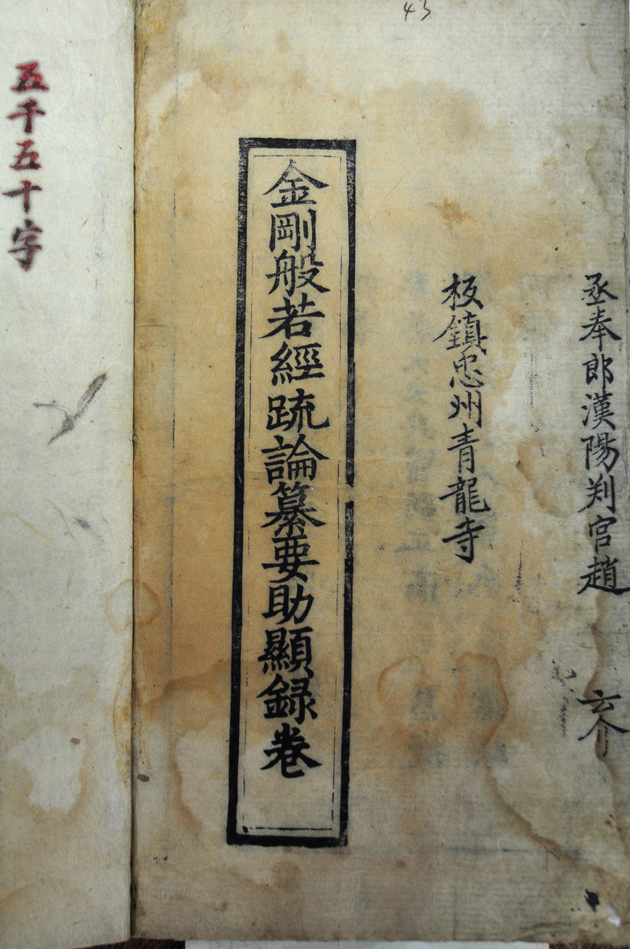 43
丞奉郎漢陽判官趙
板鎮忠州青龍寺
金剛般若經疏論纂要助顯録卷
五千五十字